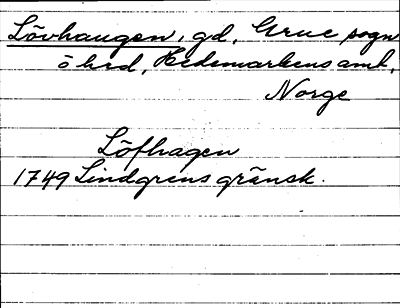 Lövhaugen, gd, Grue sogn
o hrd, Hedemarkens amt,
Norge
Löfhagen
1749 Lindgrens gränsk.